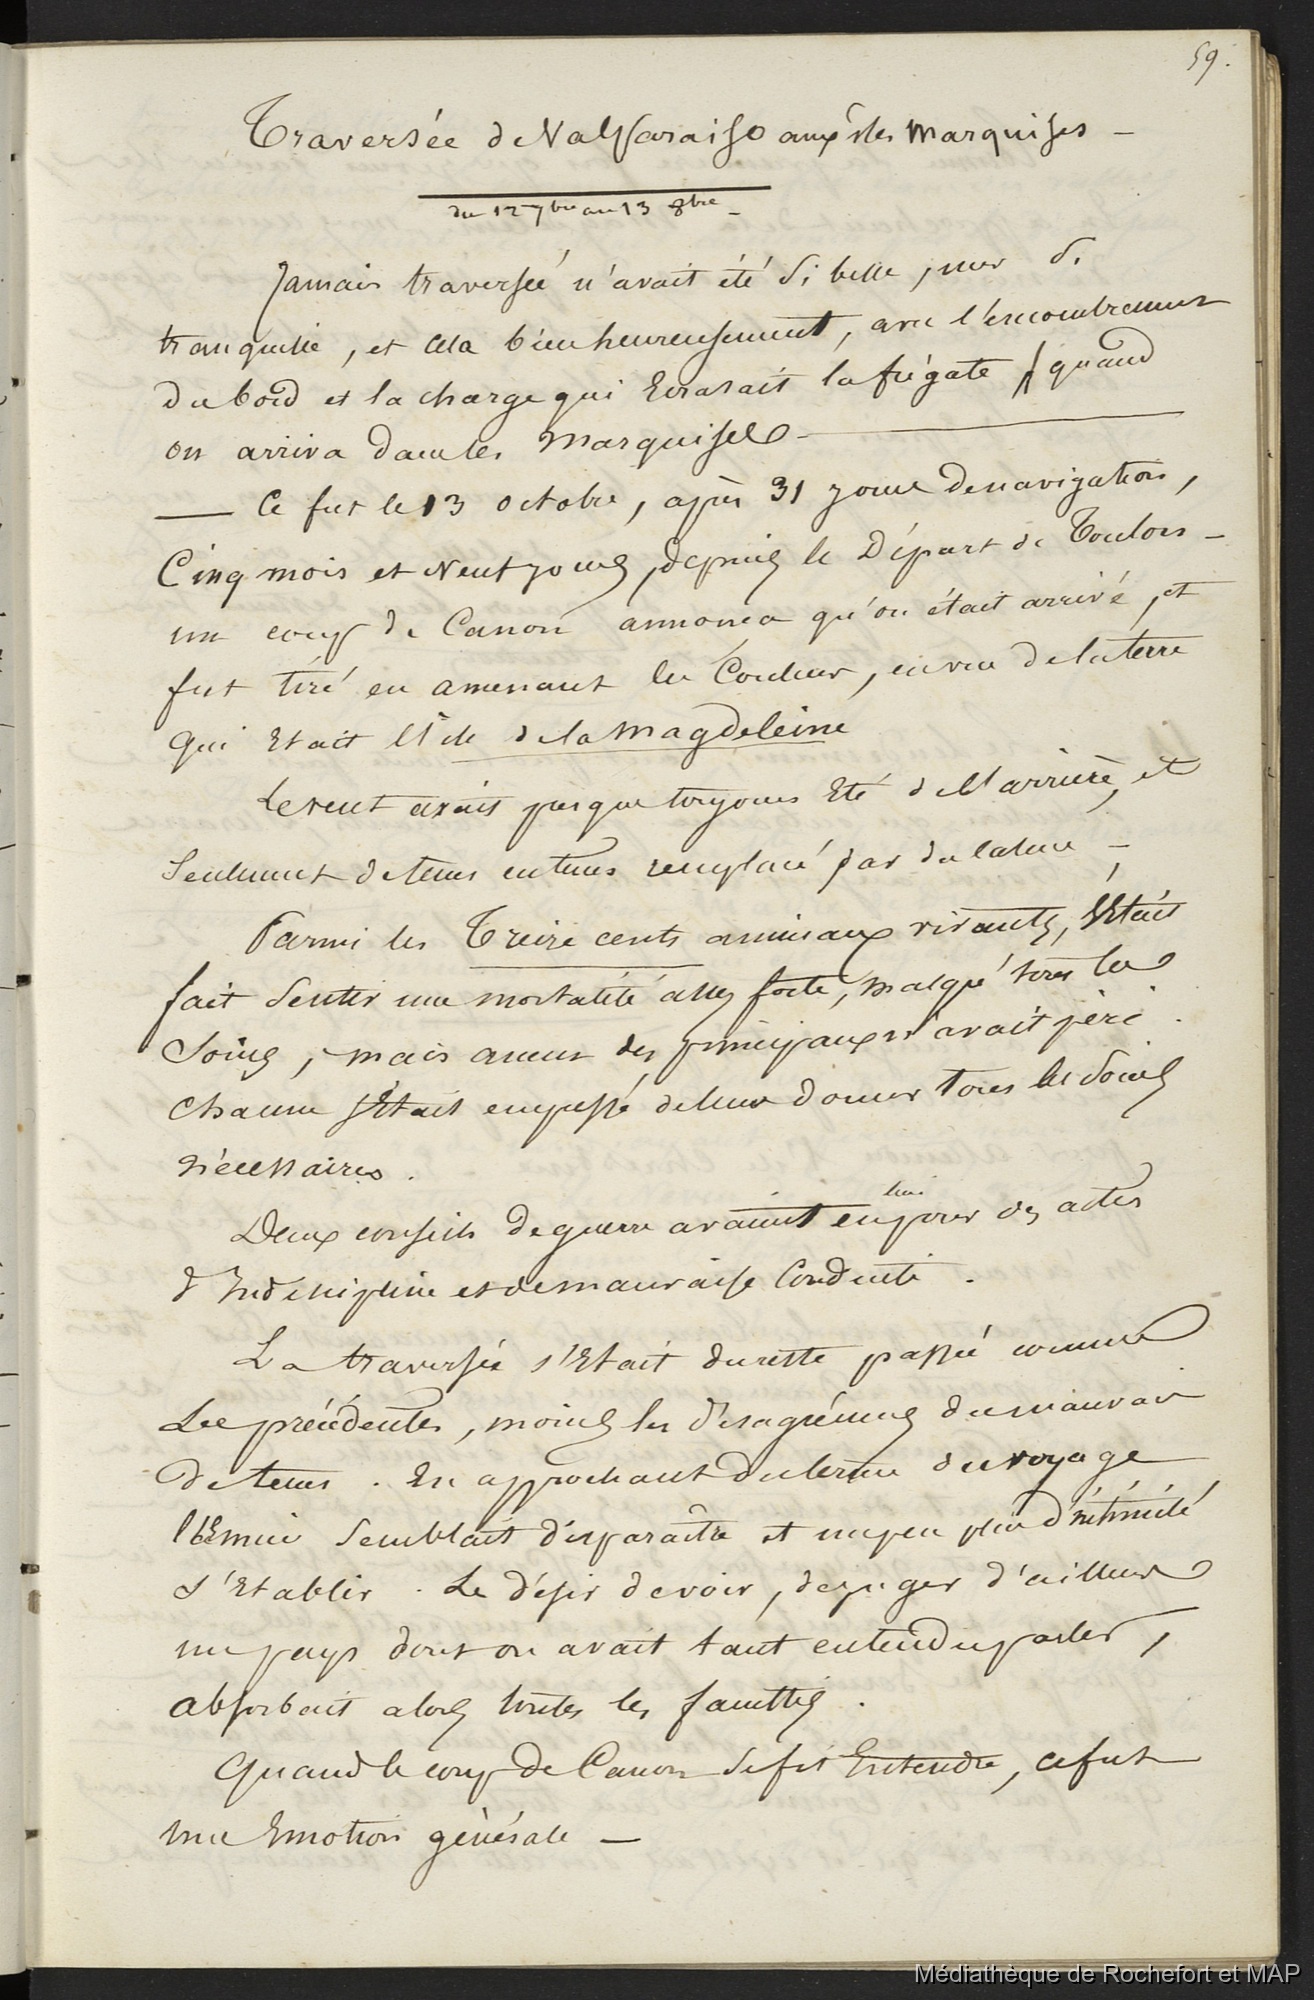 59.
Traversée de Valparaiso aux îles Marquises –
du 12 7bre au 13 8bre –
Jamais traversée n'avait été si belle, mer si
tranquille, et cela bien heureusement, avec l'encombrement
du bord et la charge qui Ecrasait la frégate quand
on arriva dans les Marquises –
— Ce fut le 13 octobre, après 31 jours de navigation,
Cinq mois et Neuf jours, depuis le Départ de Toulon –
un coup de Canon annonca qu'on était arrivé, et
fut tiré en amenant les Couleurs, en vue de la terre
qui Etait l'Ile de la Magdeleine
Le vent avait presque toujours Eté de l'arrière, et
Seulement de tems en tems remplacé par du calme –
Parmi les Treize cents animaux vivants, s'Etait
fait sentir une mortalité assez forte, malgré tous les
Soins, mais aucun des principaux n'avait péri.
Chacun s'Etait empressé de leur donner tous les soins
nécessaires.
Deux conseils de guerre avaient eu lieu pour des actes
d'Indiscipline et de mauvaise Conduite.
La traversée s'Etait du reste passée comme
Les précédentes, moins les désagrémens du mauvais
de tems. En approchant du terme du voyage
l'Ennui semblait disparaître et un peu plus d'intimité
s'Etablir. Le désir de voir, de juger d'ailleurs
un pays dont on avait tant entendu parler,
absorbait alors toutes les facultés.
Quand le coup de Canon se fit Entendre, ce fut
une Emotion générale —
Médiathèque de Rochefort et MAP